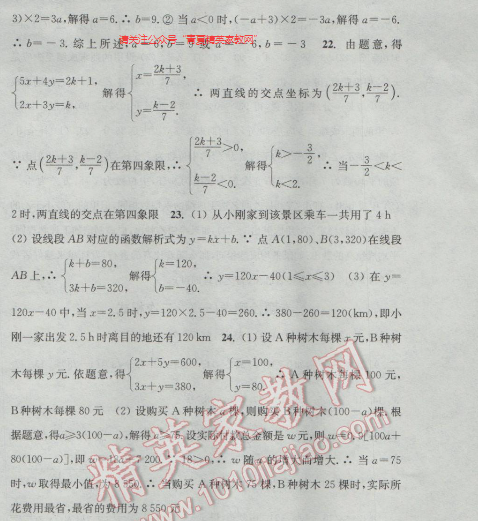 3)×2=3a,解得a=6.∴b=9.② 当a<0时,(-a+3)×2=-3a,解得a=-6.
请关注公众号"菁菁精英家教网"
∴b=-3. 综上所述,a=6,b=9或a=-6,b=-3 22. 由题意,得
{5x+4y=2k+1, 2x+3y=k, 解得{x=(2k+3)/7, y=(k-2)/7. ∴两直线的交点坐标为((2k+3)/7,(k-2)/7).
∵点((2k+3)/7,(k-2)/7)在第四象限,∴{(2k+3)/7>0, (k-2)/7<0. 解得{k>-3/2, k<2. ∴当-3/2<k<
2时,两直线的交点在第四象限 23. (1) 从小刚家到该景区乘车一共用了4 h
(2) 设线段AB对应的函数解析式为y=kx+b.∵点A(1,80)、B(3,320)在线段
AB上,∴{k+b=80, 3k+b=320, 解得{k=120, b=-40. ∴y=120x-40(1≤x≤3) (3) 在y=
120x-40中,当x=2.5时,y=120×2.5-40=260.∴380-260=120(km),即小
刚一家出发2.5 h时离目的地还有120 km 24. (1) 设A种树木每棵x元,B种树
木每棵y元.依题意,得{2x+5y=600, 3x+y=380, 解得{x=100, y=80. ∴A种树木每棵100元,
B种树木每棵80元 (2) 设购买A种树木a棵,则购买B种树木(100-a)棵.根
据题意,得a≥3(100-a),解得a≥75.设实际付款总金额是w元,则w=0.9[100a+
80(100-a)],即w=18a+7 200.∵18>0,∴w随a的增大而增大.∴当a=75
时,w取得最小值,为8 550.∴当购买A种树木75棵,B种树木25棵时,实际所
花费用最省,最省的费用为8 550元
精英家教网
www.1010jiajiao.com